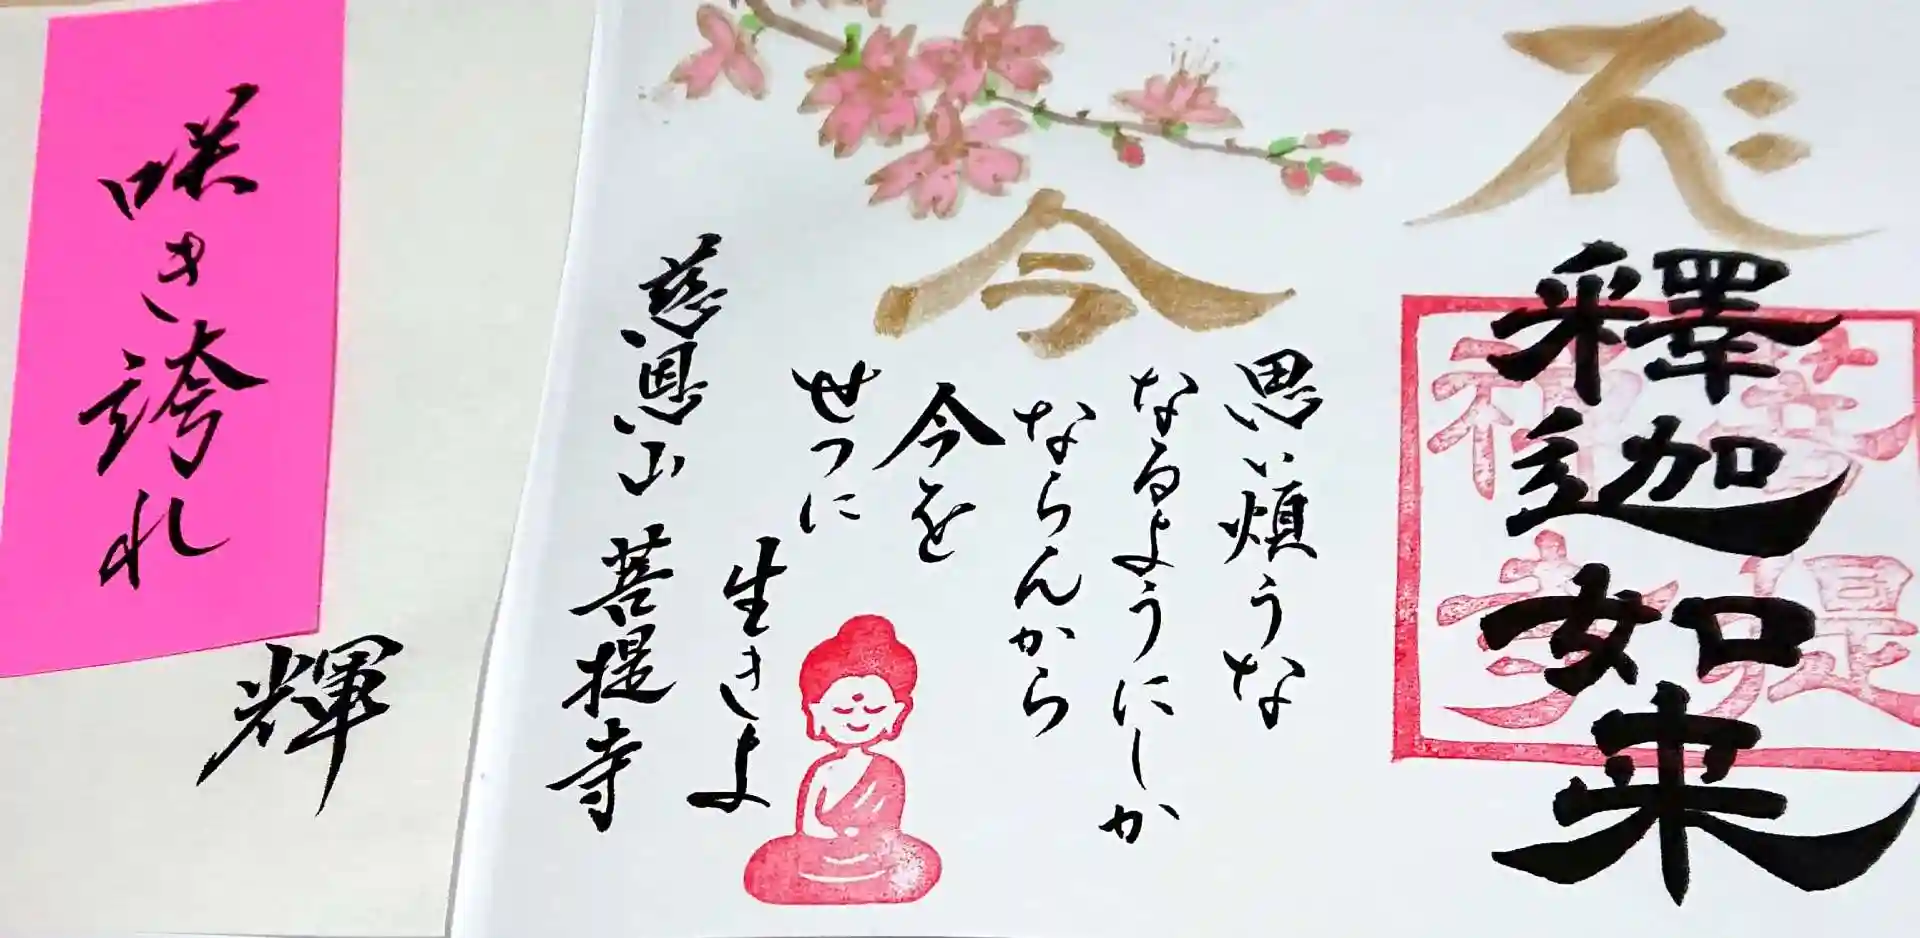 𑖥𑖾
釋迦如来
菩提禅寺
今
思い煩うな
なるようにしか
ならんから
今を
せつに
生きよ
慈恩山 菩提寺
咲き誇れ
輝